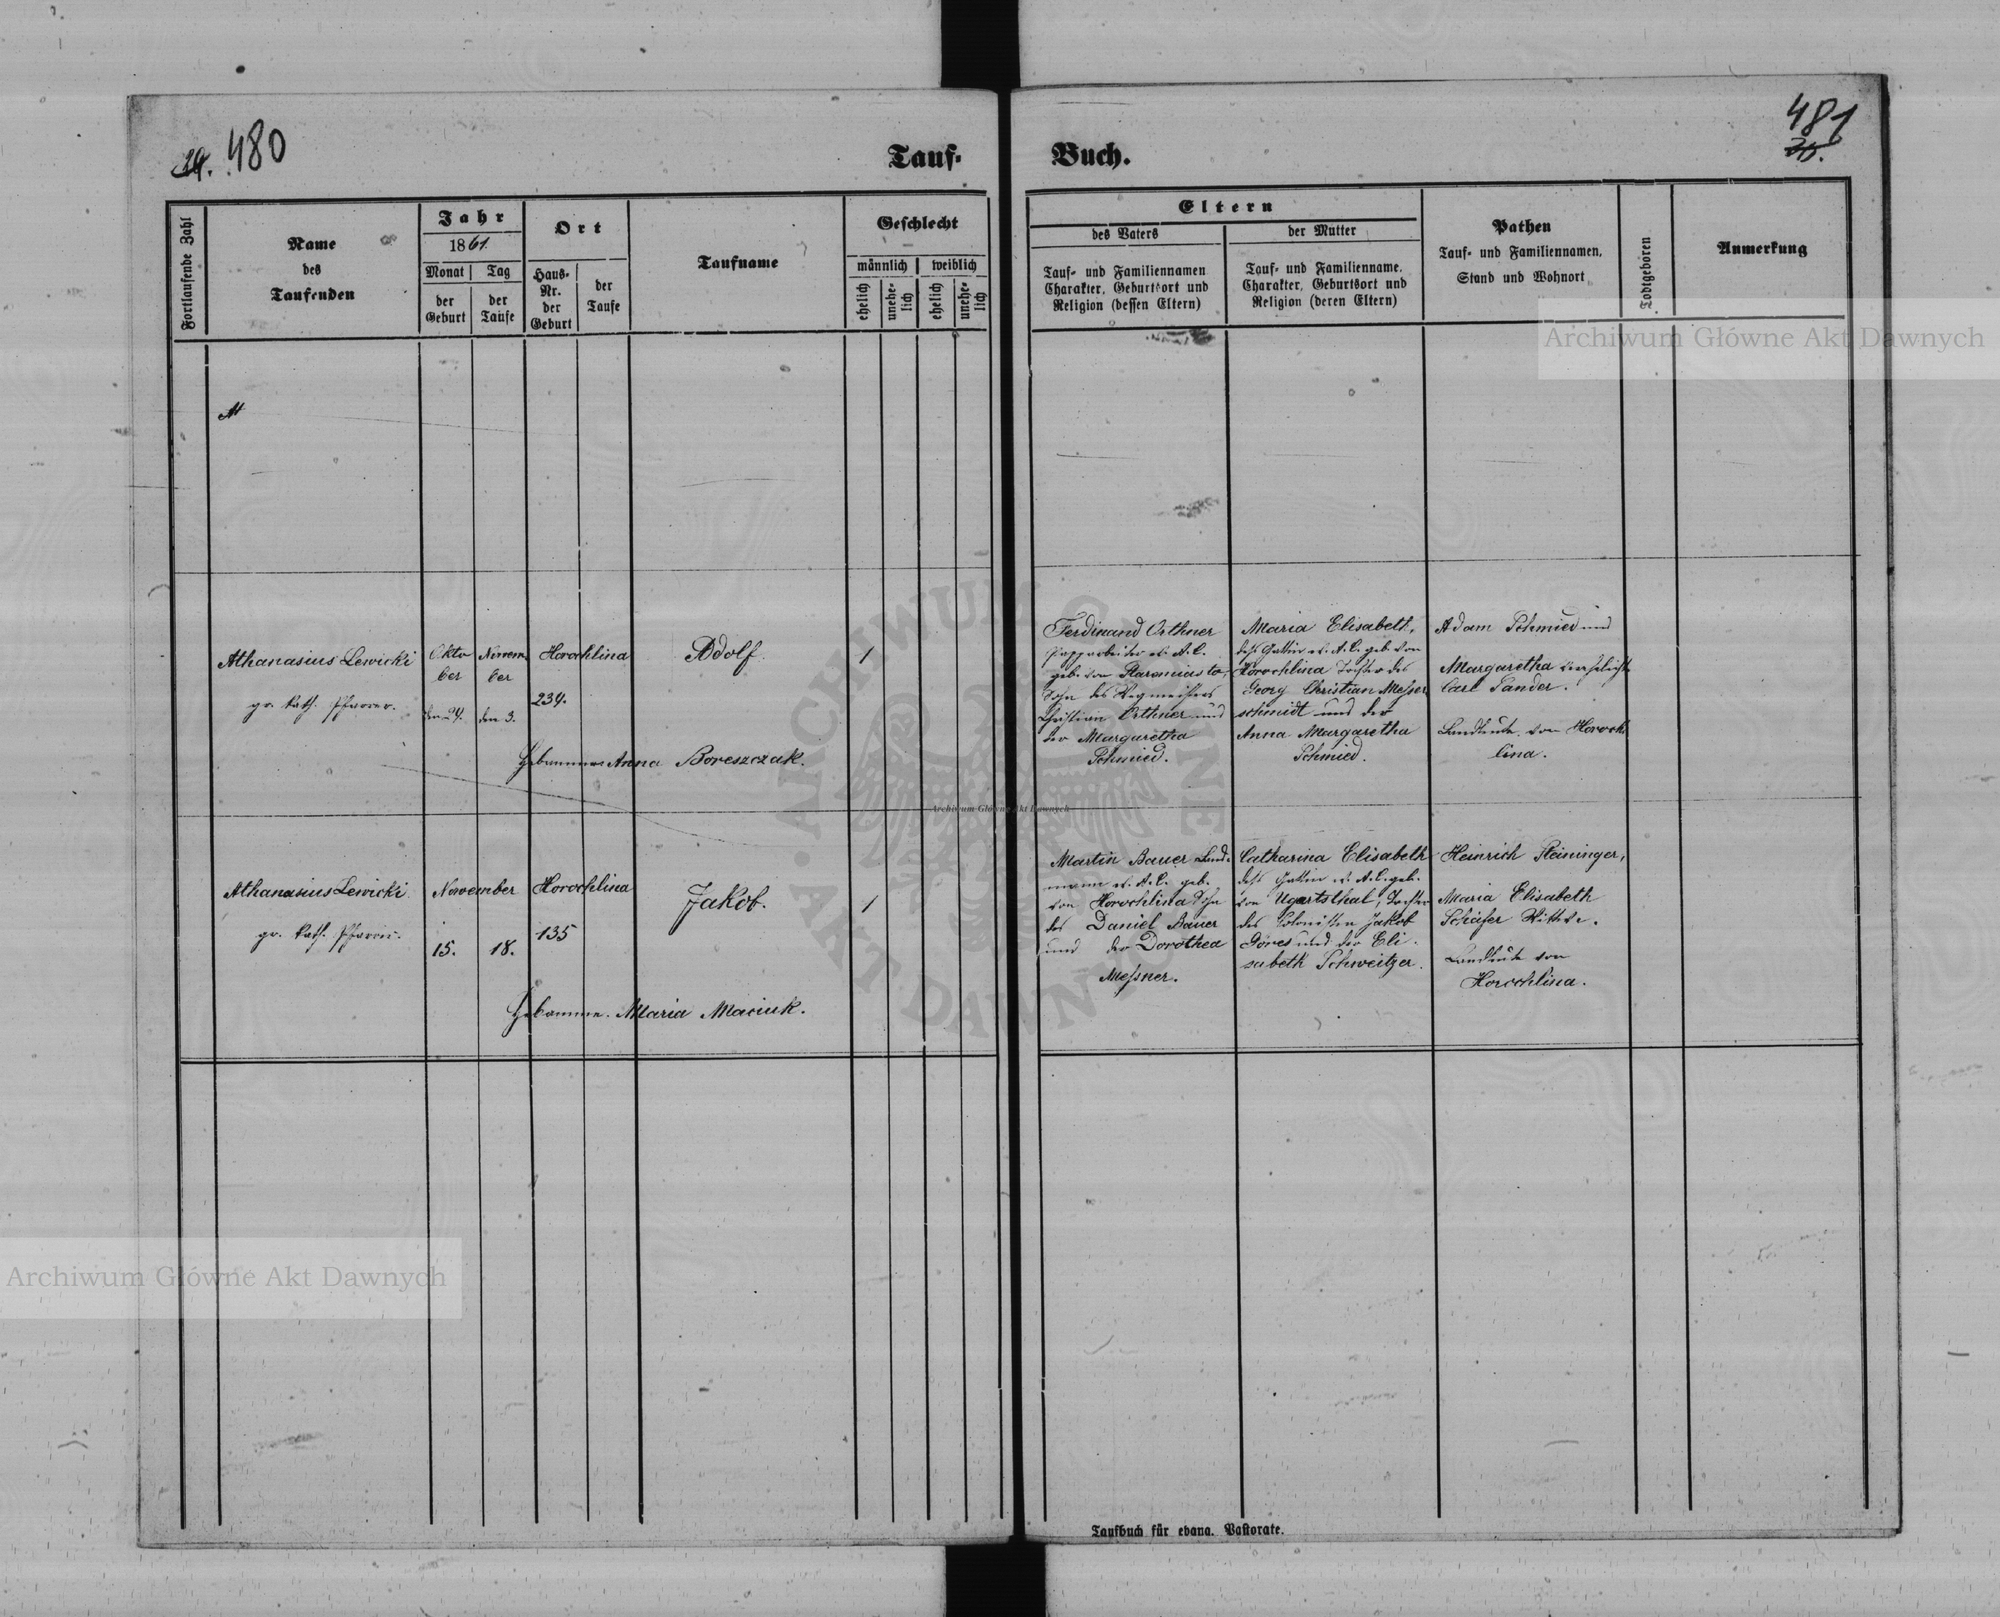 480
481
30.
Tauf-
Buch.
Fortlaufende Zahl
Name
des
Taufenden
Jahr
1861.
Monat
Tag
der
Geburt
der
Taufe
Ort
Haus-
Nr.
der
Geburt
der
Taufe
Taufname
Geschlecht
männlich
weiblich
ehelich
unehe-
lich
ehelich
unehe-
lich
Eltern
des Vaters
der Mutter
Tauf- und Familiennamen
Charakter, Geburtsort und
Religion (dessen Eltern)
Tauf- und Familienname,
Charakter, Geburtsort und
Religion (deren Eltern)
Pathen
Tauf- und Familiennamen,
Stand und Wohnort
Todtgeboren
Anmerkung
Athanasius Lewicki
gr. kath. Pfarrer.
Okto
ber
den 24.
Novem
ber
den 3.
Horochlina
234.
Adolf.
1
Hebamme Anna Boreszczak.
Ferdinand Orthner
geb. von
Sohn des Wegmeisters
Christian Orthner und
der Margaretha
Schmied.
Maria Elisabeth,
dess. Gattin ev. A. C. geb. von
Horochlina Tochter des
Georg Christian Messer
schmidt und der
Anna Margaretha
Schmied.
Adam Schmied und
Margaretha verehelicht
Carl Sander.
Landleute von Horoch
lina.
Athanasius Lewicki
gr. kath. Pfarrer.
November
15. 18.
Horochlina
135
Jakob.
1
Hebamme. Maria Maciuk.
Martin Bauer Land-
mann ev. A. C. geb.
von Horochlina Sohn
des Daniel Bauer
und der Dorothea
Messner.
Catharina Elisabeth
dess. Gattin ev. A. C. geb.
von Ugartsthal, Tochter
des Colonisten Jakob
Göres und der Eli
sabeth Schweitzer.
Heinrich Steininger,
Maria Elisabeth
Schäfer Wittwe.
Landleute von
Horochlina.
Taufbuch für evang. Pastorate.
Archiwum Główne Akt Dawnych
Archiwum Główne Akt Dawnych
Archiwum Główne Akt Dawnych
ARCHIWUM GŁÓWNE AKT DAWNYCH